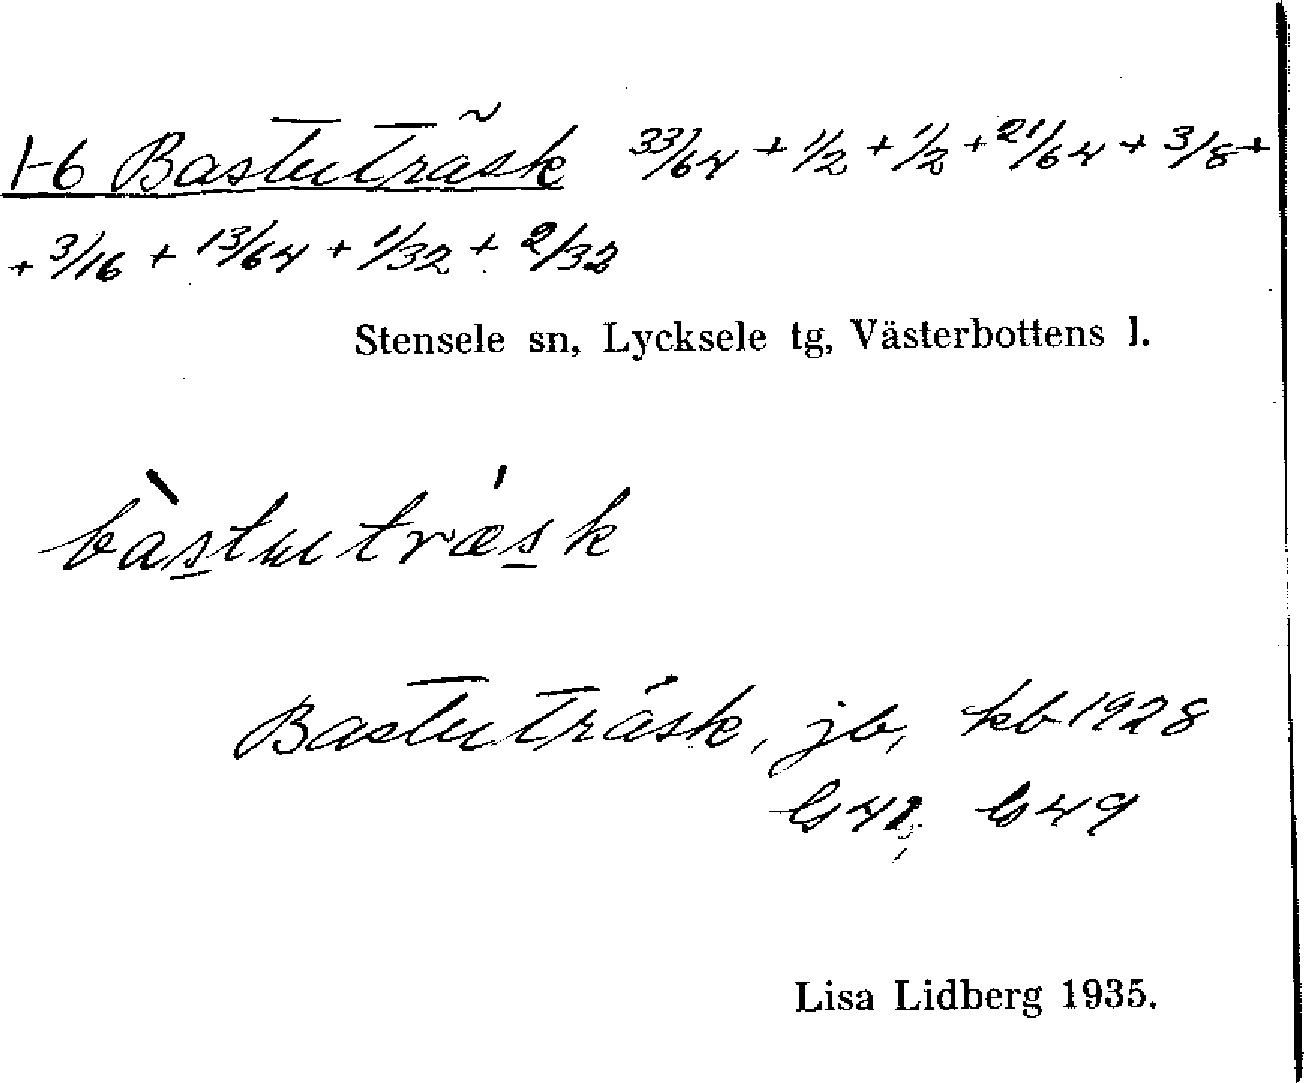 1-6 Bastuträsk 33/64 + 1/2 + 1/2 + 21/64 + 3/8 +
+ 3/16 + 13/64 + 1/32 + 2/32
Stensele sn, Lycksele tg, Västerbottens l.
bàstuträsk
Bastuträsk, jb, kb 1928
G49
Lisa Lidberg 1935.